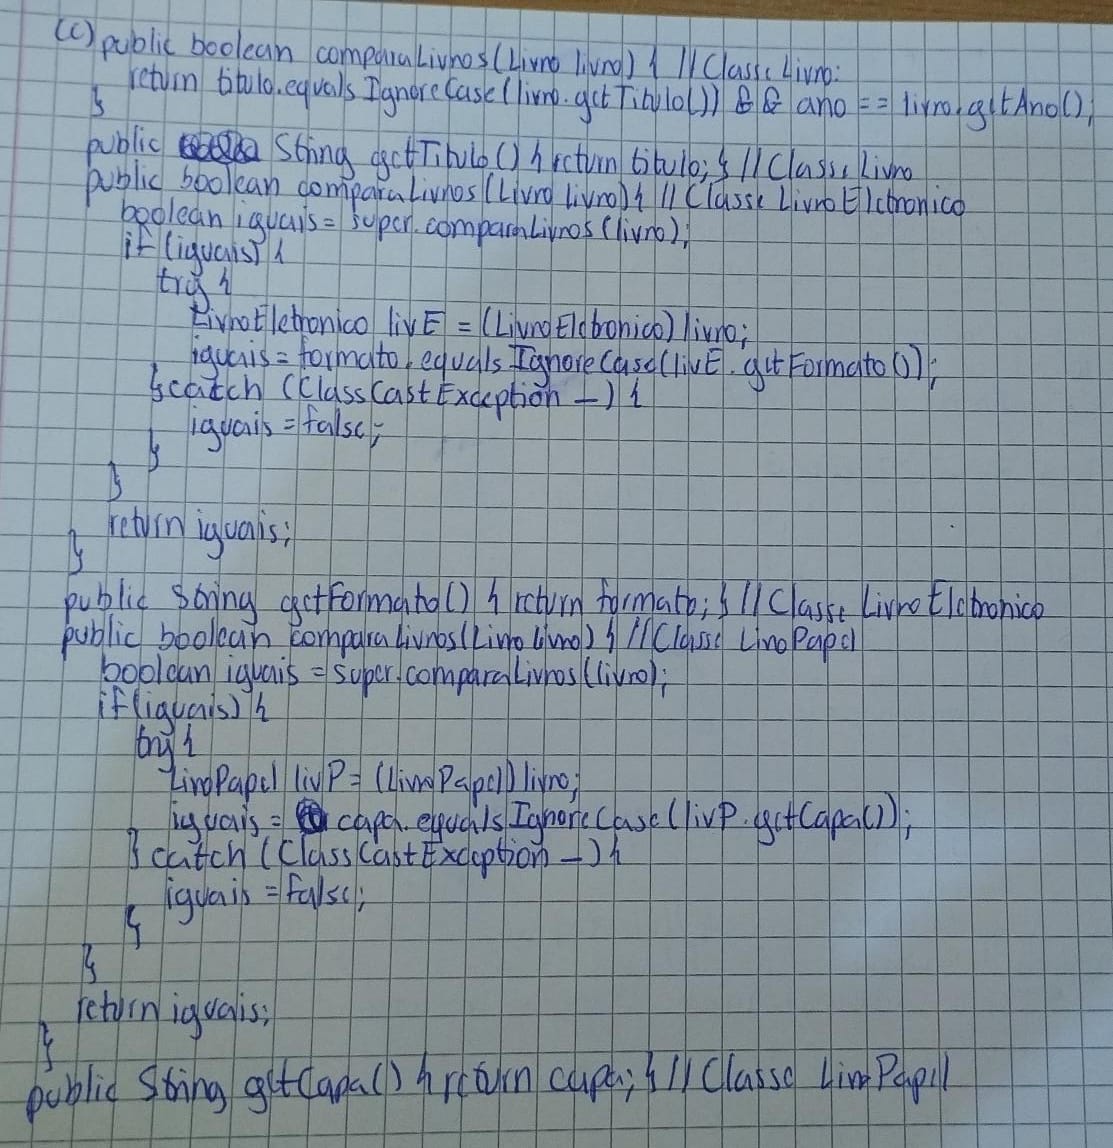 (c) public boolean comparaLivros(Livro livro) { // Classe Livro:
return titulo.equalsIgnoreCase(livro.getTitulo()) && ano == livro.getAno();
}
public String getTitulo() { return titulo; } // Classe Livro
public boolean comparaLivros(Livro livro) { // Classe LivroEletronico
boolean iguais = super.comparaLivros(livro);
if (iguais) {
try {
LivroEletronico livE = (LivroEletronico) livro;
iguais = formato.equalsIgnoreCase(livE.getFormato());
} catch (ClassCastException _) {
iguais = false;
}
}
return iguais;
}
public String getFormato() { return formato; } // Classe LivroEletronico
public boolean comparaLivros(Livro livro) { // Classe LivroPapel
boolean iguais = super.comparaLivros(livro);
if (iguais) {
try {
LivroPapel livP = (LivroPapel) livro;
iguais = capa.equalsIgnoreCase(livP.getCapa());
} catch (ClassCastException _) {
iguais = false;
}
}
return iguais;
}
public String getCapa() { return capa; } // Classe LivroPapel